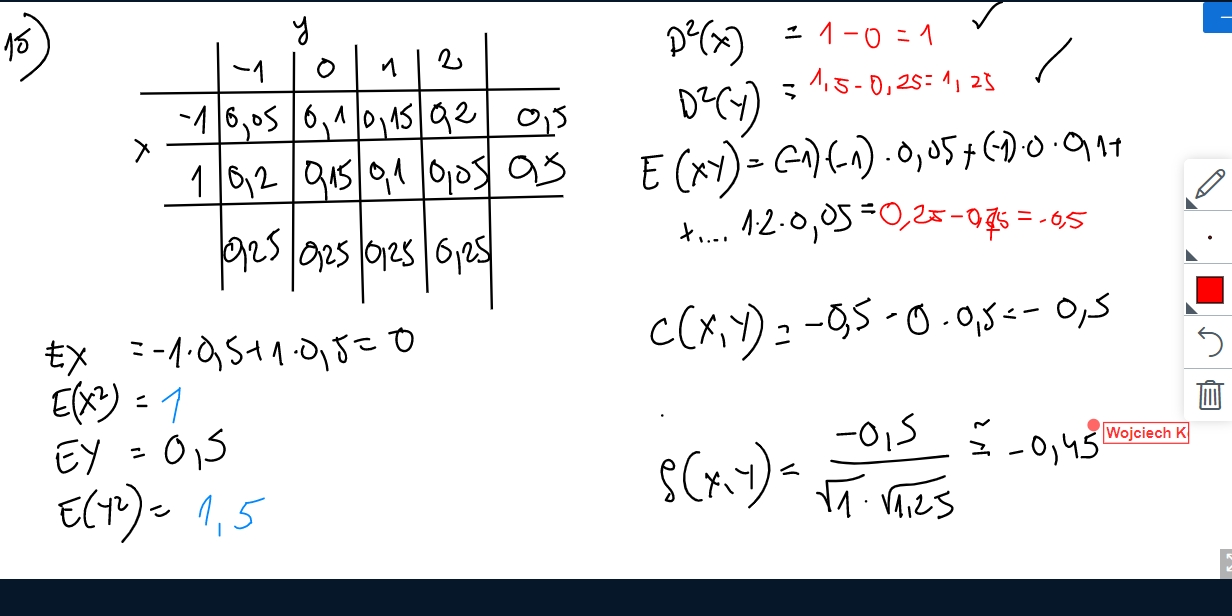 15)
y
-1 0 1 2
x
-1 0,05 0,1 0,15 0,2 0,5
1 0,2 0,15 0,1 0,05 0,5
0,25 0,25 0,25 0,25
EX = -1·0,5+1·0,5=0
E(X²) = 1
EY = 0,5
E(Y²) = 1,5
D²(X) = 1-0=1 ✓
D²(Y) = 1,5-0,25=1,25 ✓
E(XY)=(-1)(-1)·0,05+(-1)·0·0,1+
+.... 1·2·0,05=0,25-0,75=-0,5
C(X,Y)=-0,5-0·0,5=-0,5
ρ(X,Y)= -0,5 / √1·√1,25 ≅ -0,45
Wojciech K